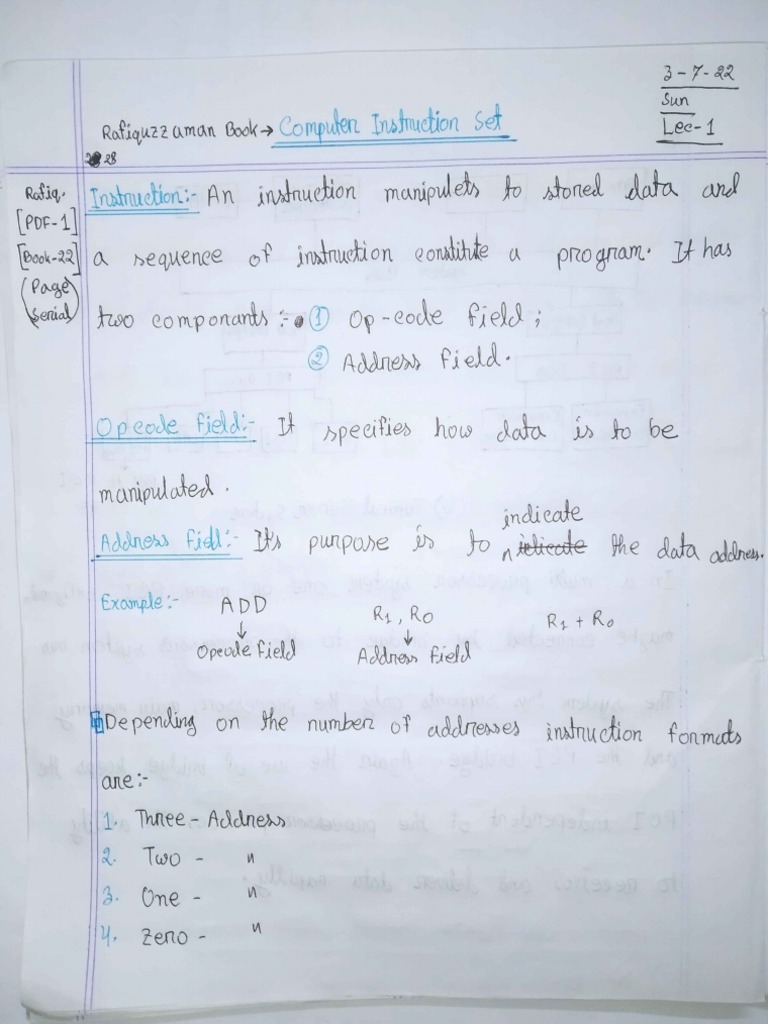 3-7-22
Sun
Lec-1
Rafiquzzaman Book → Computer Instruction Set
28
Rafiq.
[PDF-1]
[Book-22]
(Page
Serial)
Instruction:- An instruction manipulets to stored data and
a sequence of instruction constitute a program. It has
two componants :- ① Op-code field;
② Address field.
Opcode field:- It specifies how data is to be
manipulated.
indicate
Address field:- It's purpose is to the data address.
Example:- ADD R1, R0 R1 + R0
↓ ↓
Opcode field Address field
Depending on the number of addresses instruction formats
are:-
1. Three - Address
2. Two - "
3. One - "
4. Zero - "